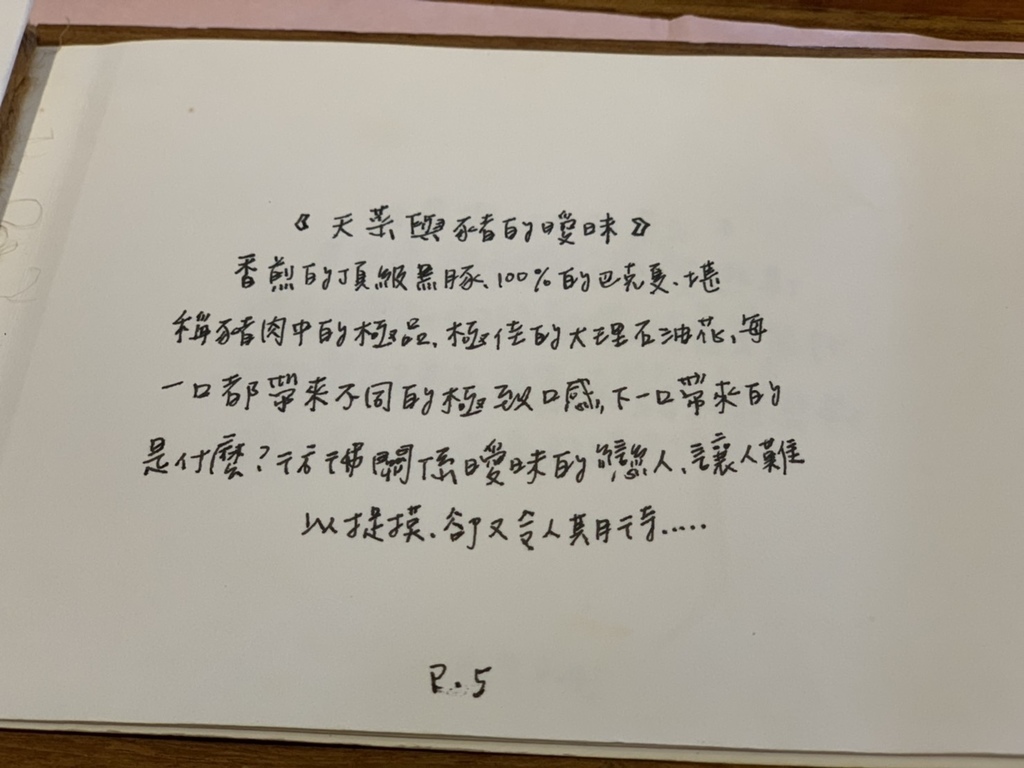 《天菜與豬的曖昧》
香煎的頂級黑豚、100%的巴克夏、堪
稱豬肉中的極品、極佳的大理石油花,每
一口都帶來不同的極致口感,下一口帶來的
是什麼?彷彿關係曖昧的戀人、讓人難
以捉摸、卻又令人期待.....
P.5